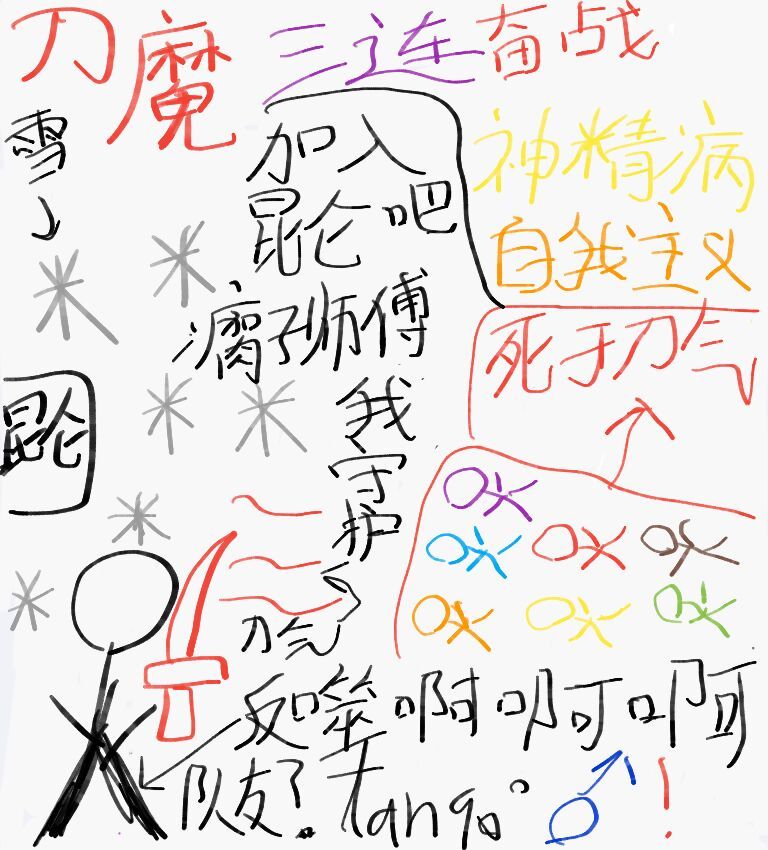 刀魔
三连奋战
雪
加入
昆仑吧
神精病
自我主义
腐子师傅
死于刀气
昆仑
我守护
刀气
反噬啊啊啊
队友？tango。
♂！